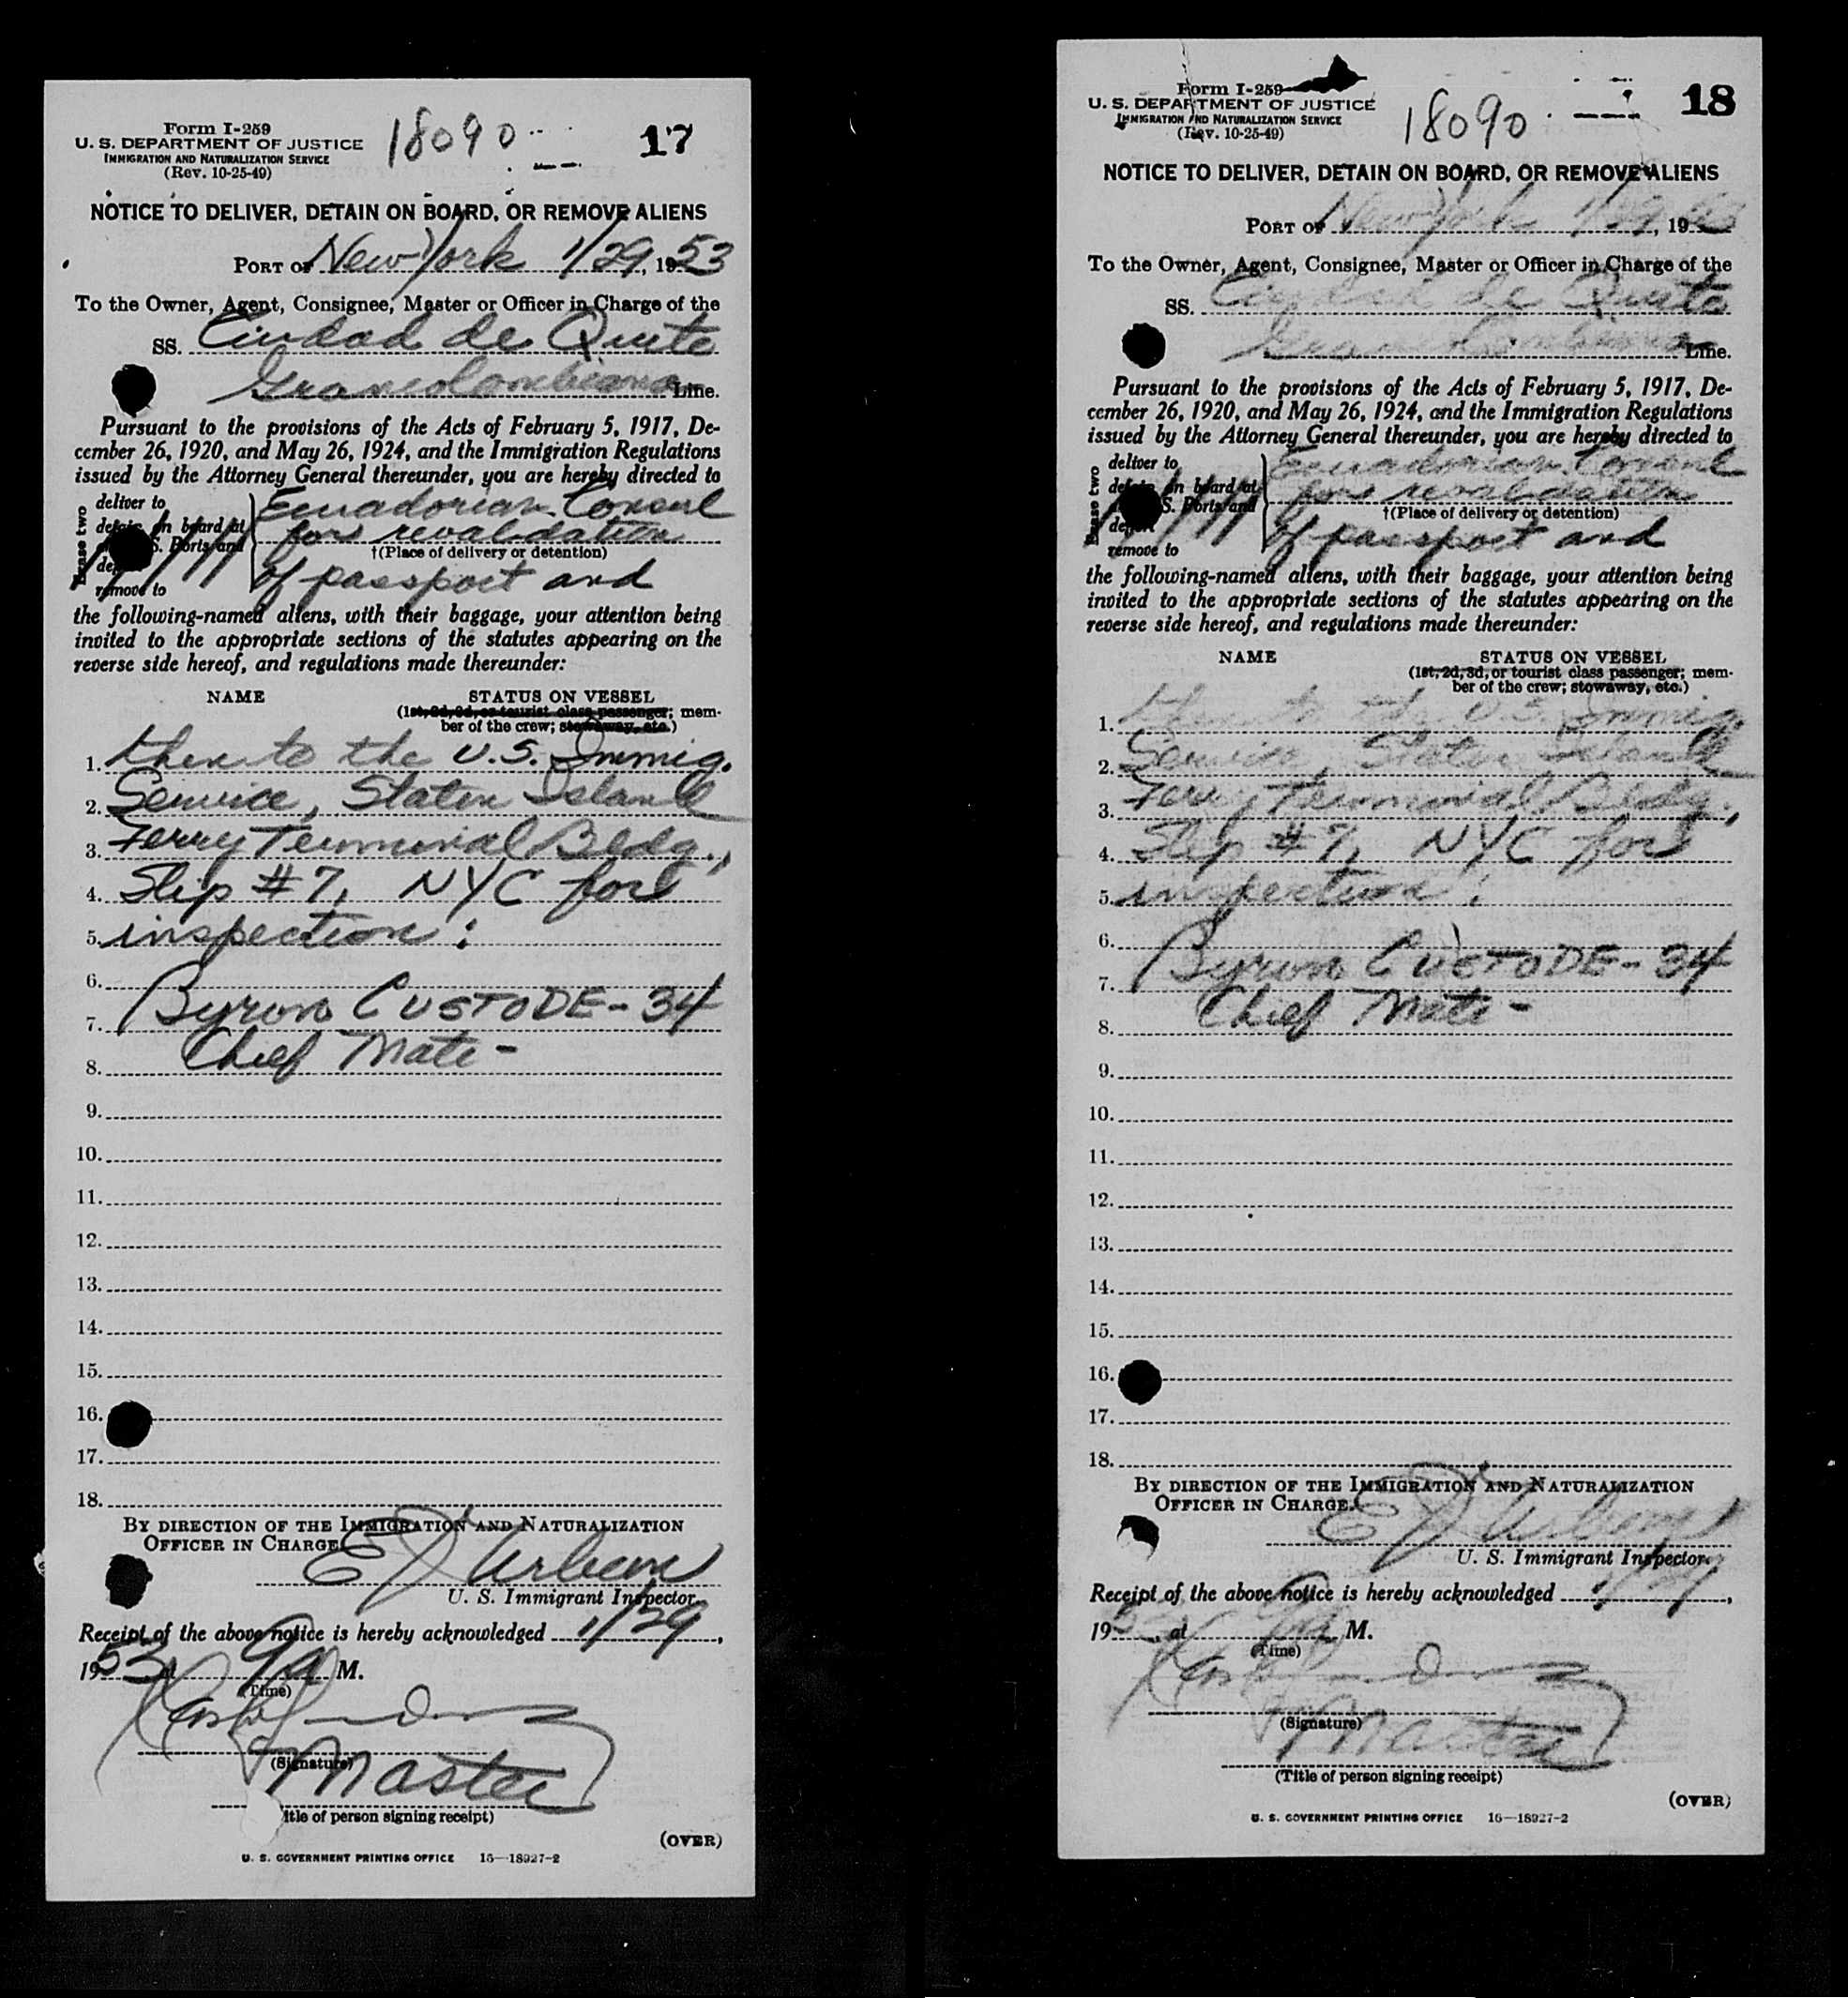 Form I-259
U. S. DEPARTMENT OF JUSTICE
IMMIGRATION AND NATURALIZATION SERVICE
(Rev. 10-25-49)
18090
17
NOTICE TO DELIVER, DETAIN ON BOARD, OR REMOVE ALIENS
PORT OF New York 1/29, 1953
To the Owner, Agent, Consignee, Master or Officer in Charge of the
SS. Ciudad de Quito
Grancolombiana Line.
Pursuant to the provisions of the Acts of February 5, 1917, De-
cember 26, 1920, and May 26, 1924, and the Immigration Regulations
issued by the Attorney General thereunder, you are hereby directed to
Erase two
deliver to
detain on board at
S. Ports and
remove to
Ecuadorian Consul
for revalidation
†(Place of delivery or detention)
of passport and
the following-named aliens, with their baggage, your attention being
invited to the appropriate sections of the statutes appearing on the
reverse side hereof, and regulations made thereunder:
NAME STATUS ON VESSEL
(1st, 2d, 3d, or tourist class passenger; mem-
ber of the crew; stowaway, etc.)
1. then to the U.S. Immig.
2. Service, Staten Island
3. Ferry Terminal Bldg.,
4. Slip #7, NYC for
5. inspection:
6.
7. Byron CUSTODE - 34
8. Chief Mate -
9.
10.
11.
12.
13.
14.
15.
16.
17.
18.
BY DIRECTION OF THE IMMIGRATION AND NATURALIZATION
OFFICER IN CHARGE.
E J Urban
U. S. Immigrant Inspector.
Receipt of the above notice is hereby acknowledged 1/29,
1953 at 9 a M.
(Time)
(Signature)
Master
itle of person signing receipt)
(OVER)
U. S. GOVERNMENT PRINTING OFFICE 16—18927-2
Form I-259
U. S. DEPARTMENT OF JUSTICE
IMMIGRATION AND NATURALIZATION SERVICE
(Rev. 10-25-49)
18090
18
NOTICE TO DELIVER, DETAIN ON BOARD, OR REMOVE ALIENS
PORT OF New York 1/29, 1953
To the Owner, Agent, Consignee, Master or Officer in Charge of the
SS. Ciudad de Quito
Grancolombiana Line.
Pursuant to the provisions of the Acts of February 5, 1917, De-
cember 26, 1920, and May 26, 1924, and the Immigration Regulations
issued by the Attorney General thereunder, you are hereby directed to
Erase two
deliver to
on board at
S. Ports and
remove to
Ecuadorian Consul
for revalidation
†(Place of delivery or detention)
of passport and
the following-named aliens, with their baggage, your attention being
invited to the appropriate sections of the statutes appearing on the
reverse side hereof, and regulations made thereunder:
NAME STATUS ON VESSEL
(1st, 2d, 3d, or tourist class passenger; mem-
ber of the crew; stowaway, etc.)
1. then to the U.S. Immig.
2. Service, Staten Island
3. Ferry Terminal Bldg.,
4. Slip #7, NYC for
5. inspection:
6.
7. Byron CUSTODE - 34
8. Chief Mate -
9.
10.
11.
12.
13.
14.
15.
16.
17.
18.
BY DIRECTION OF THE IMMIGRATION AND NATURALIZATION
OFFICER IN CHARGE.
E J Urban
U. S. Immigrant Inspector.
Receipt of the above notice is hereby acknowledged 1/29,
1953, at 9 a M.
(Time)
(Signature)
Master
(Title of person signing receipt)
(OVER)
U. S. GOVERNMENT PRINTING OFFICE 16—18927-2